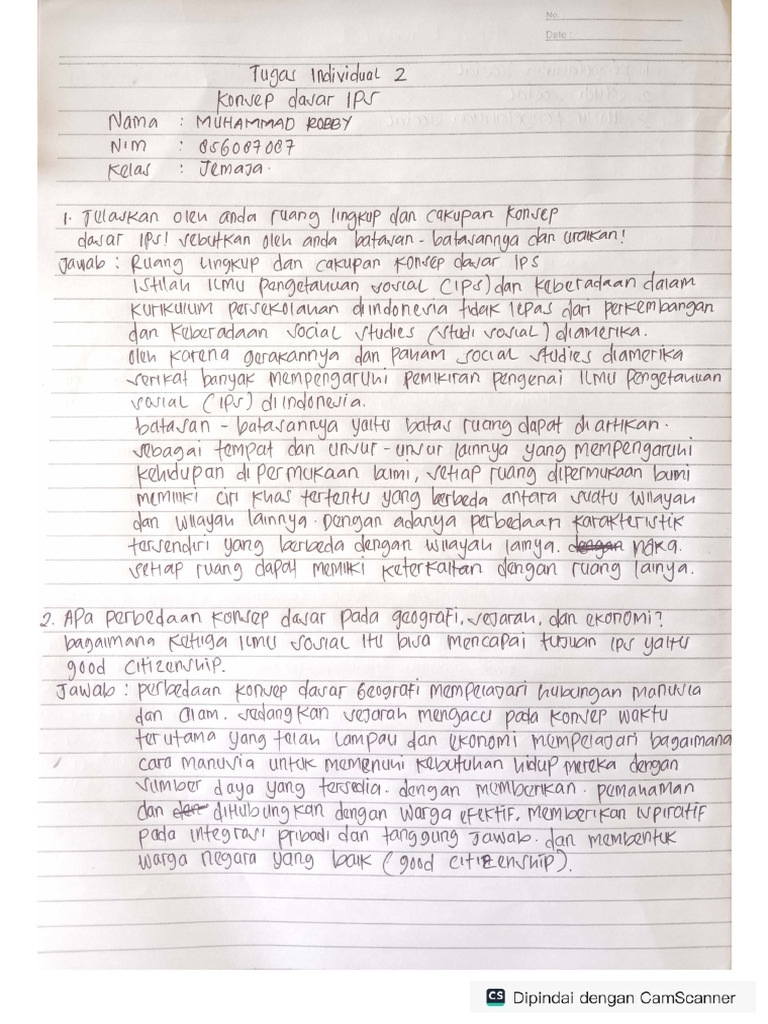 No.
Date :
Tugas Individual 2
Konsep dasar IPS
Nama : MUHAMMAD ROBBY
Nim : 856087087
Kelas : Jemaja.
1. Jelaskan oleh anda ruang lingkup dan cakupan konsep
dasar IPS! sebutkan oleh anda batasan-batasannya dan uraikan!
Jawab : Ruang lingkup dan cakupan konsep dasar IPS
Istilah Ilmu pengetahuan sosial (IPS) dan keberadaan dalam
kurikulum persekolahan diindonesia tidak lepas dari perkembangan
dan keberadaan social studies (studi sosial) diamerika.
oleh karena gerakannya dan paham social studies diamerika
serikat banyak mempengaruhi pemikiran pengenai Ilmu pengetahuan
sosial (IPS) di indonesia.
batasan-batasannya yaitu batas ruang dapat di artikan.
sebagai tempat dan unsur-unsur lainnya yang mempengaruhi
kehidupan di permukaan bumi, setiap ruang dipermukaan bumi
memiliki ciri khas tertentu yang berbeda antara suatu wilayah
dan wilayah lainnya. Dengan adanya perbedaan karakteristik
tersendiri yang berbeda dengan wilayah lainya. dengan maka.
setiap ruang dapat memiki keterkaitan dengan ruang lainya.
2. Apa perbedaan konsep dasar pada geografi, sejarah, dan ekonomi?
bagaimana ketiga ilmu sosial itu bisa mencapai tujuan IPS yaitu
good citizenship.
Jawab : perbedaan konsep dasar Geografi mempelajari hubungan manusia
dan alam. sedangkan sejarah mengacu pada konsep waktu
terutama yang telah lampau dan ekonomi mempelajari bagaimana
cara manusia untuk memenuhi kebutuhan hidup mereka dengan
sumber daya yang tersedia. dengan memberikan. pemahaman
dan dihubungkan dengan warga efektif, memberikan ispiratif
pada integrasi pribadi dan tanggung jawab. dan membentuk
warga negara yang baik (good citizenship).
CS Dipindai dengan CamScanner